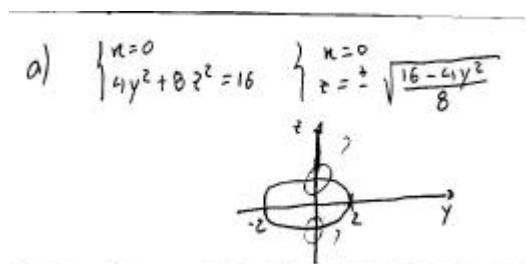 a) { x=0 { x=0
4y² + 8z² = 16 z = ± √(16 - 4y²)/8
z )
-2 2 y
)